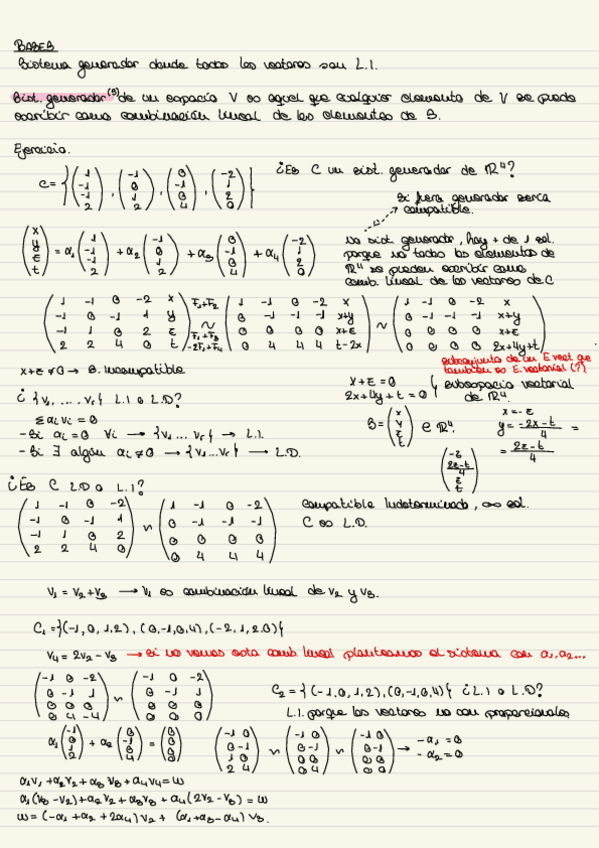 BASES
Sistema generador donde todos los vectores son L.I.
Sist. generador (S) de un espacio V es aquel que cualquier elemento de V se puede
escribir como combinación lineal de los elementos de S.
Ejercicio.
C = {(1 -1 -1 2), (-1 0 1 2), (0 -1 0 4), (-2 1 2 0)} ¿Es C un sist. generador de ℝ⁴?
Si fuera generador sería
compatible.
(x y z t) = α1 (1 -1 -1 2) + α2 (-1 0 1 2) + α3 (0 -1 0 4) + α4 (-2 1 2 0)
no sist generador, hay + de 1 sol.
porque no todos los elementos de
ℝ⁴ se pueden escribir como
comb. lineal de los vectores de C
1 -1 0 -2 x F1+F2 1 -1 0 -2 x 1 -1 0 -2 x
-1 0 -1 1 y ~ 0 -1 -1 -1 x+y ~ 0 -1 -1 -1 x+y
-1 1 0 2 z F1+F3 0 0 0 0 x+z 0 0 0 0 x+z
2 2 4 0 t -2F1+F4 0 4 4 4 t-2x 0 0 0 0 2x+4y+t
subconjunto de un E vect que
también es E. vectorial (?)
x+z ≠ 0 → S. Incompatible
x+z = 0
2x+4y+t = 0 } subespacio vectorial
de ℝ⁴.
¿ {v1, ... vr} L.I o L.D?
Σ αi vi = 0
- Si αi = 0 ∀i → {v1 ... vr} → L.I.
- Si ∃ algún αi ≠ 0 → {v1 ... vr} → L.D.
S = (x y z t) ∈ ℝ⁴.
x = -z
y = -2x-t / 4 =
= 2z-t / 4
(-z 2z-t/4 z t)
¿Es C L.D o L.I?
1 -1 0 -2 1 -1 0 -2
-1 0 -1 1 ~ 0 -1 -1 -1
-1 1 0 2 0 0 0 0
2 2 4 0 0 4 4 4
Compatible Indeterminado, ∞ sol.
C es L.D.
v1 = v2 + v3 → v1 es combinación lineal de v2 y v3.
C1 = {(-1, 0, 1, 2), (0, -1, 0, 4), (-2, 1, 2, 0)}
v4 = 2v2 - v3 → Si no vemos esta comb lineal planteamos el sistema con α1, α2...
-1 0 -2 -1 0 -2
0 -1 1 ~ 0 -1 1
0 0 0 0 0 0
0 4 -4 0 0 0
C2 = {(-1, 0, 1, 2), (0, -1, 0, 4)} ¿L.I o L.D?
L.I. porque los vectores no son proporcionales
α1 (-1 0 1 2) + α2 (0 -1 0 4) = (0 0 0 0)
-1 0 -1 0 -1 0
0 -1 ~ 0 -1 ~ 0 -1 → -α1 = 0
1 0 0 0 0 0 -α2 = 0
2 4 0 4 0 0
α1v1 + α2v2 + α3v3 + α4v4 = w
α1(v3 - v2) + α2v2 + α3v3 + α4(2v2 - v3) = w
w = (-α1 + α2 + 2α4) v2 + (α1 + α3 - α4) v3.